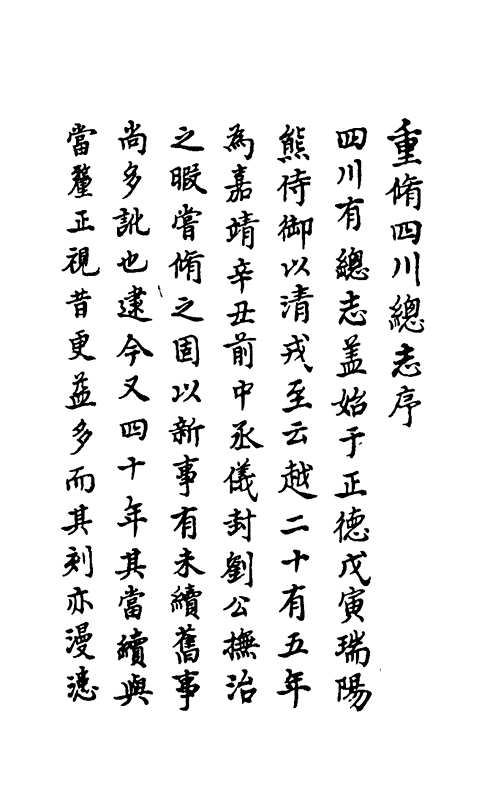 重脩四川總志序
四川有總志蓋始于正德戊寅瑞陽
熊侍御以清戎至云越二十有五年
為嘉靖辛丑前中丞儀封劉公撫治
之暇嘗脩之固以新事有未續舊事
尚多訛也逮今又四十年其當續與
當釐正視昔更益多而其刻亦漫漶